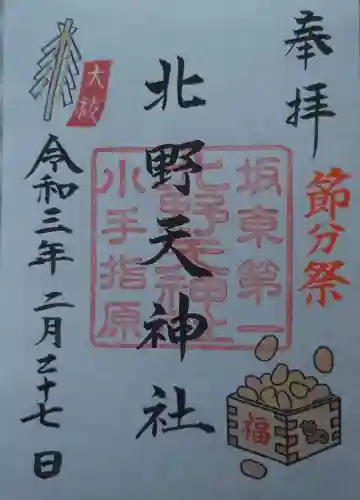 奉拝
節分祭
坂東第一
北野天神社
小手指原
北野天神社
大祓
令和三年二月二十七日
福